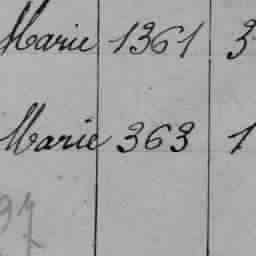 Marie 1361 3
Marie 363 1
97